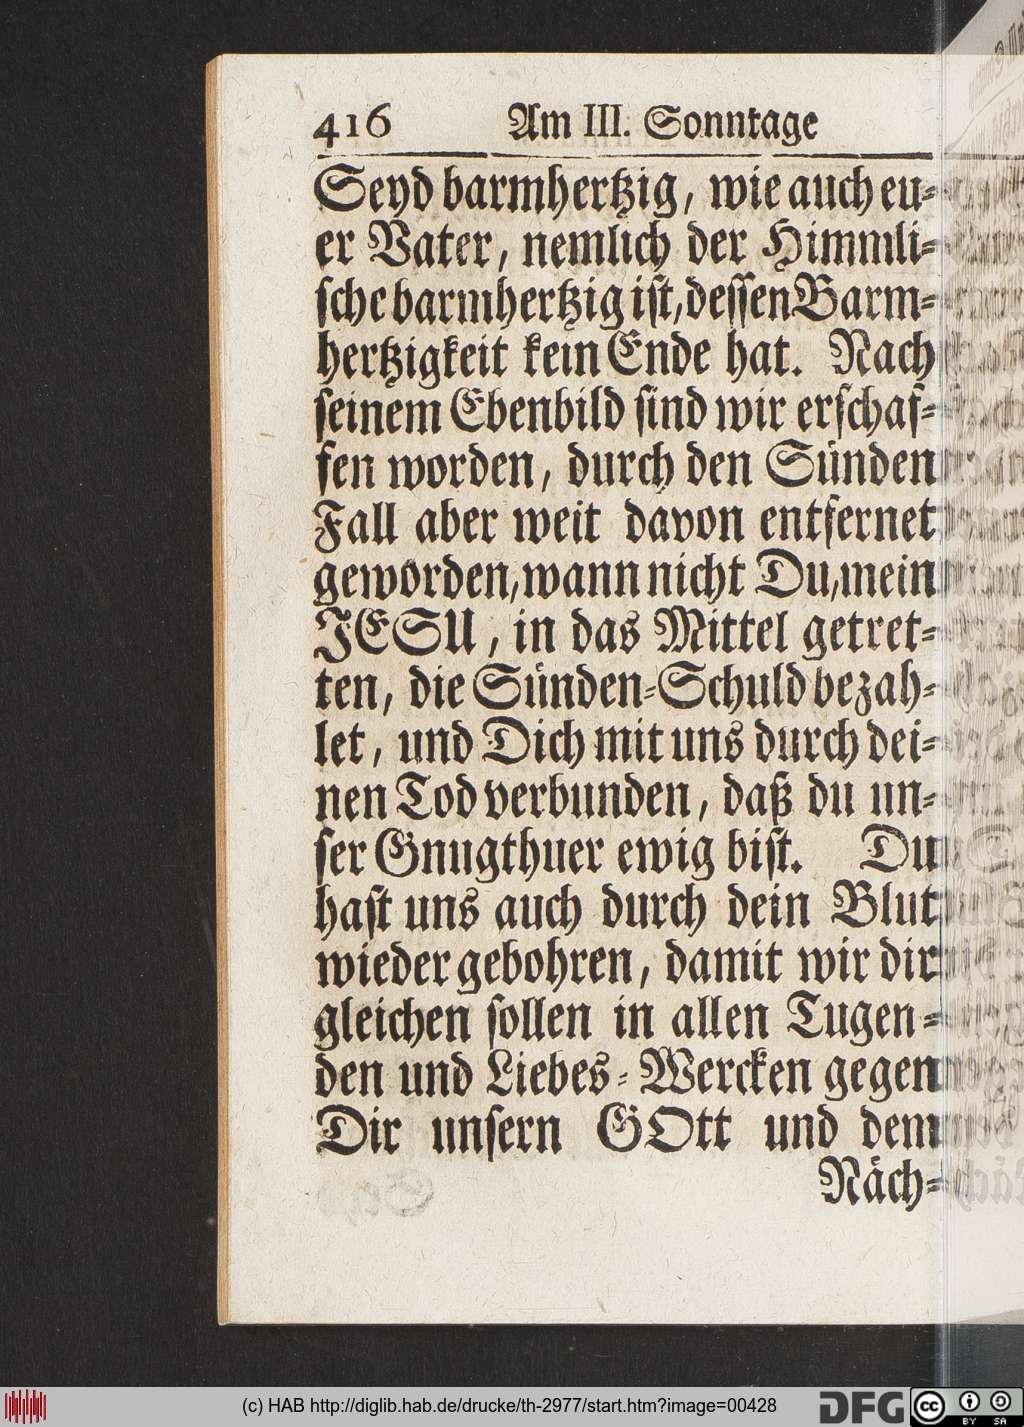 416 Am III. Sonntage
Seyd barmhertzig, wie auch eu-
er Vater, nemlich der Himmli-
sche barmhertzig ist, dessen Barm-
hertzigkeit kein Ende hat. Nach
seinem Ebenbild sind wir erschaf-
fen worden, durch den Sünden
Fall aber weit davon entfernet
geworden, wann nicht Du, mein
JESU, in das Mittel getret-
ten, die Sünden-Schuld bezah-
let, und Dich mit uns durch dei-
nen Tod verbunden, daß du un-
ser Gnugthuer ewig bist. Du
hast uns auch durch dein Blut
wieder gebohren, damit wir dir
gleichen sollen in allen Tugen-
den und Liebes-Wercken gegen
Dir unsern GOtt und dem
Näch-
(c) HAB http://diglib.hab.de/drucke/th-2977/start.htm?image=00428
DFG
cc BY SA